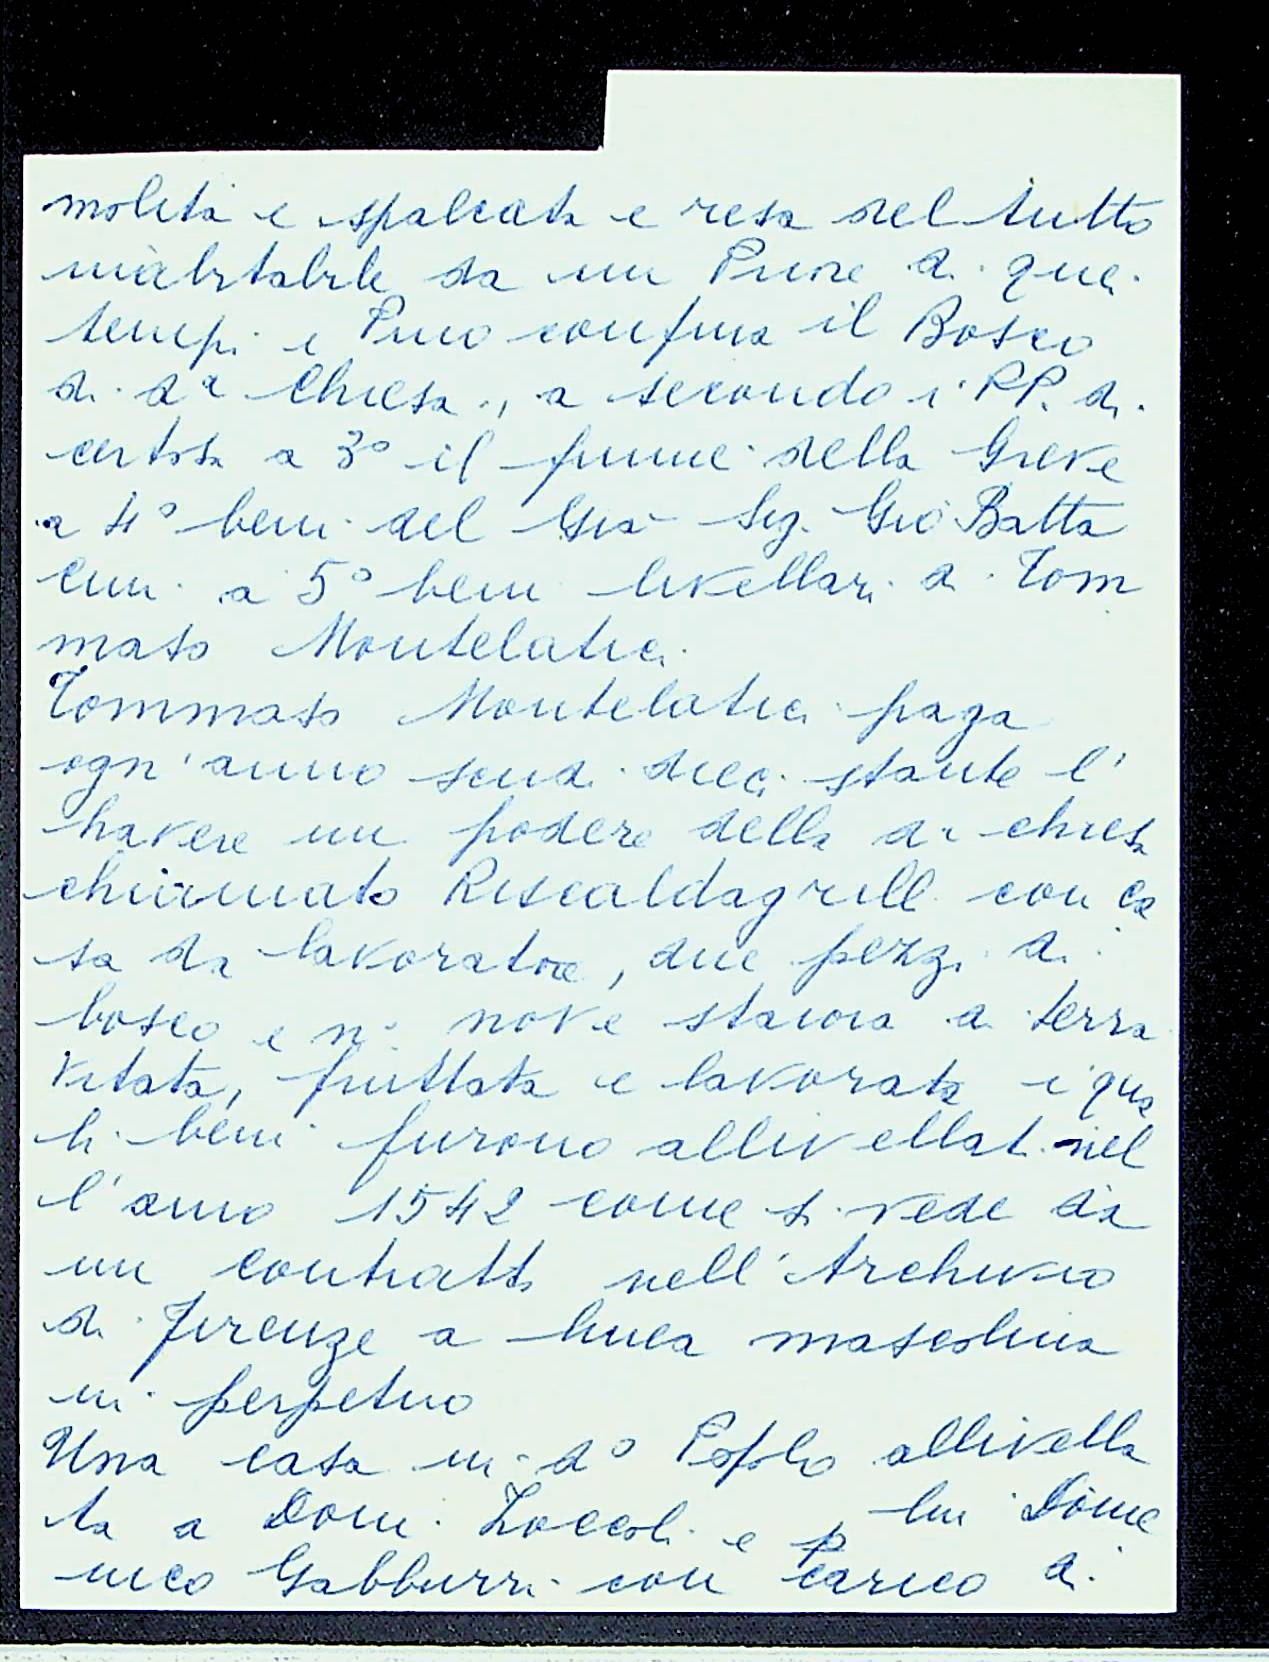 molita e spalcata e resa del tutto
inabitabile da un Priore di quei
tempi e Primo confina il Bosco
di da Chiesa, a secondo i PP. di
certosa a 3º il fiume della Greve
a 4º beni del Già Sig. Giò Batta
a 5º beni livellari di Tom
maso Montelatici
Tommaso Montelatici paga
ogn'anno scudi dieci stante l'
havere un podere della da chiesa
chiamato Riscaldagrilli con ca
sa da lavoratore, due pezzi di
bosco e nº nove staiora di terra
vitata, fruttata e lavorata i qua
li beni furono allivellati nel
l'anno 1542 come si vede da
un contratto nell'Archivio
di Firenze a linea mascolina
in perpetuo
Una casa in dº Popolo allivella
ta a Dom. Zoccoli e p lui Dome
nico Gabburri con carico di